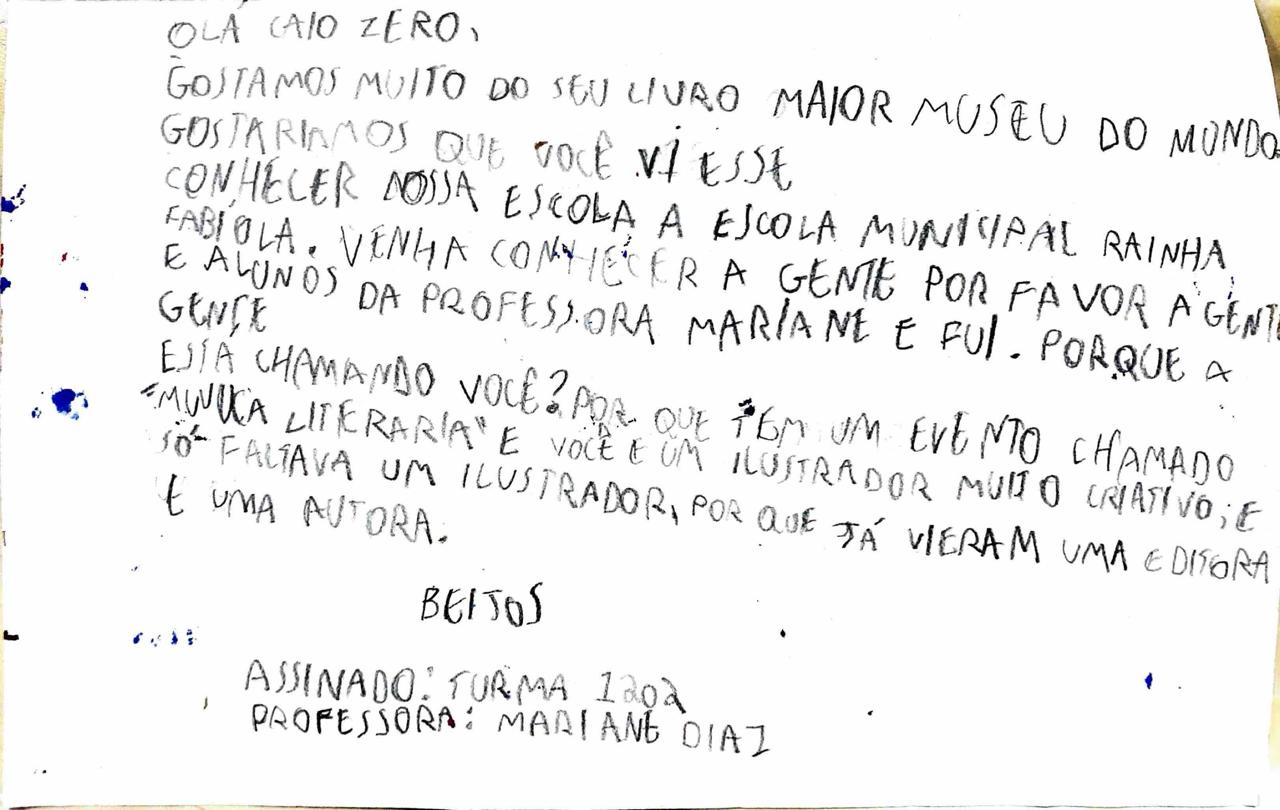 OLÁ CAIO ZERO,
GOSTAMOS MUITO DO SEU LIVRO MAIOR MUSEU DO MUNDO.
GOSTARIAMOS QUE VOCÊ VIESSE
CONHECER NOSSA ESCOLA A ESCOLA MUNICIPAL RAINHA
FABIOLA. VENHA CONHECER A GENTE POR FAVOR A GENTE
E ALUNOS DA PROFESSORA MARIANE E FUI. PORQUE A
GENTE
ESTÁ CHAMANDO VOCÊ? POR QUE TEM UM EVENTO CHAMADO
"MUVUCA LITERARIA" E VOCÊ E UM ILUSTRADOR MUITO CRIATIVO, E
SÓ FALTAVA UM ILUSTRADOR, POR QUE JÁ VIERAM UMA EDITORA
E UMA AUTORA.
BEIJOS
ASSINADO: TURMA 1202
PROFESSORA: MARIANE DIAZ